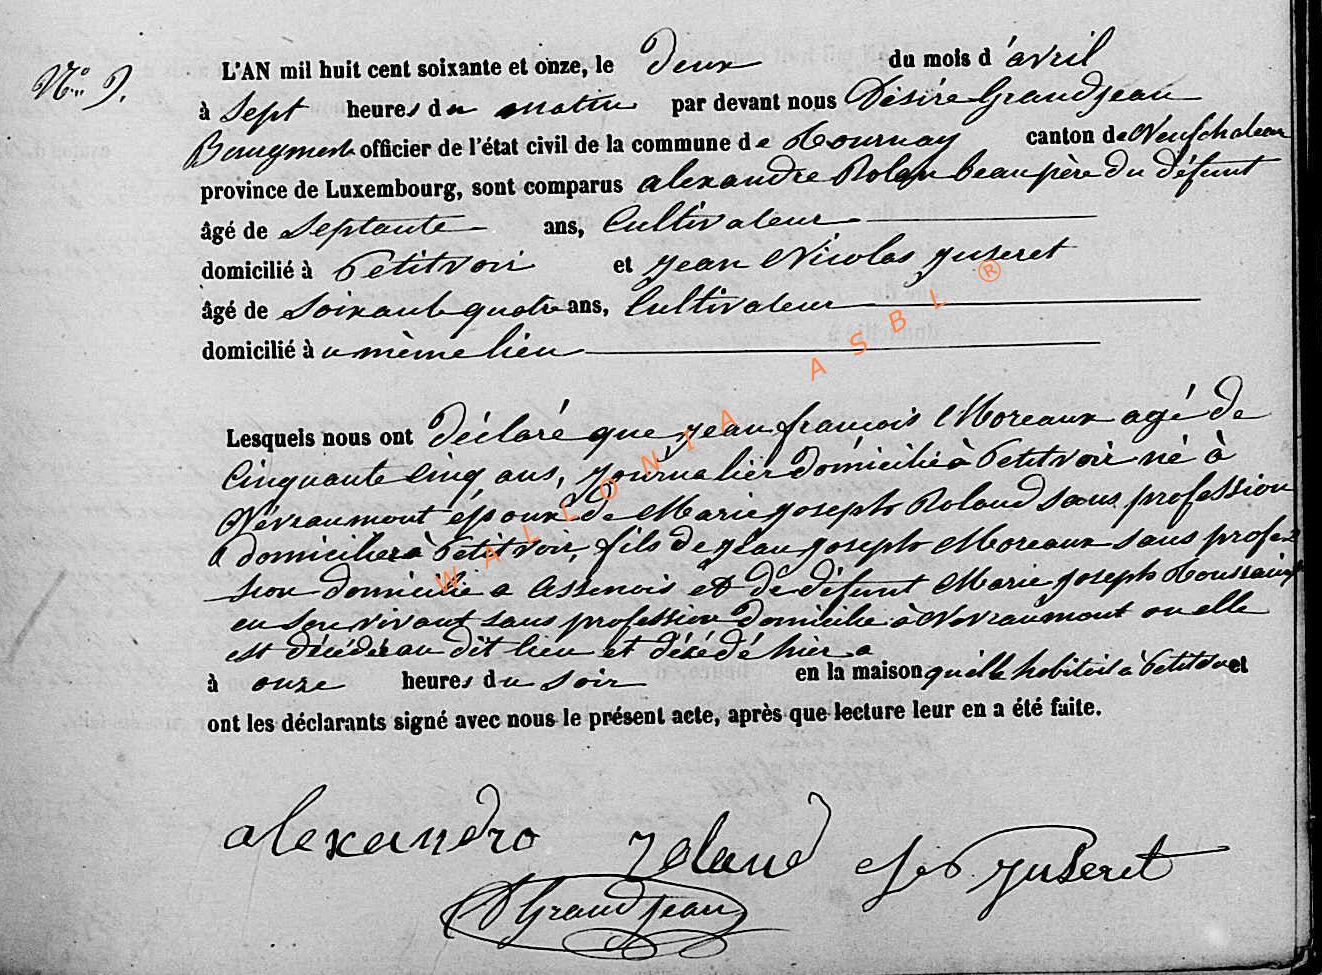 N° 9.
L'AN mil huit cent soixante et onze, le deux du mois d'avril
à sept heures du matin par devant nous Désiré Grandjean
Bourgmestre officier de l'état civil de la commune de Tournay canton de Neufchateau
province de Luxembourg, sont comparus alexandre Rolan beau père du défunt
âgé de septante ans, Cultivateur
domicilié à Petitvoir et jean Nicolas juseret
âgé de soixante quatre ans, Cultivateur
domicilié à u même lieu
Lesquels nous ont déclaré que jean francois Moreaux agé de
Cinquante Cinq ans, journalier domicilié à Petitvoir né à
Névraumont époux de Marie joseph Roland sans profession
domiciliée à Petitvoir, fils de jean joseph Moreaux sans profes
sion domicilié a Assenois et de défunt Marie joseph Toussaint
en son vivant sans profession domicilié à Névraumont ou elle
est décédée au dit lieu et décédé hier a
à onze heures du soir en la maison qu'elle habitoit à Petitvoir et
ont les déclarants signé avec nous le présent acte, après que lecture leur en a été faite.
alexandre roland juseret
D Grandjean
WALLONIA ASBL ®